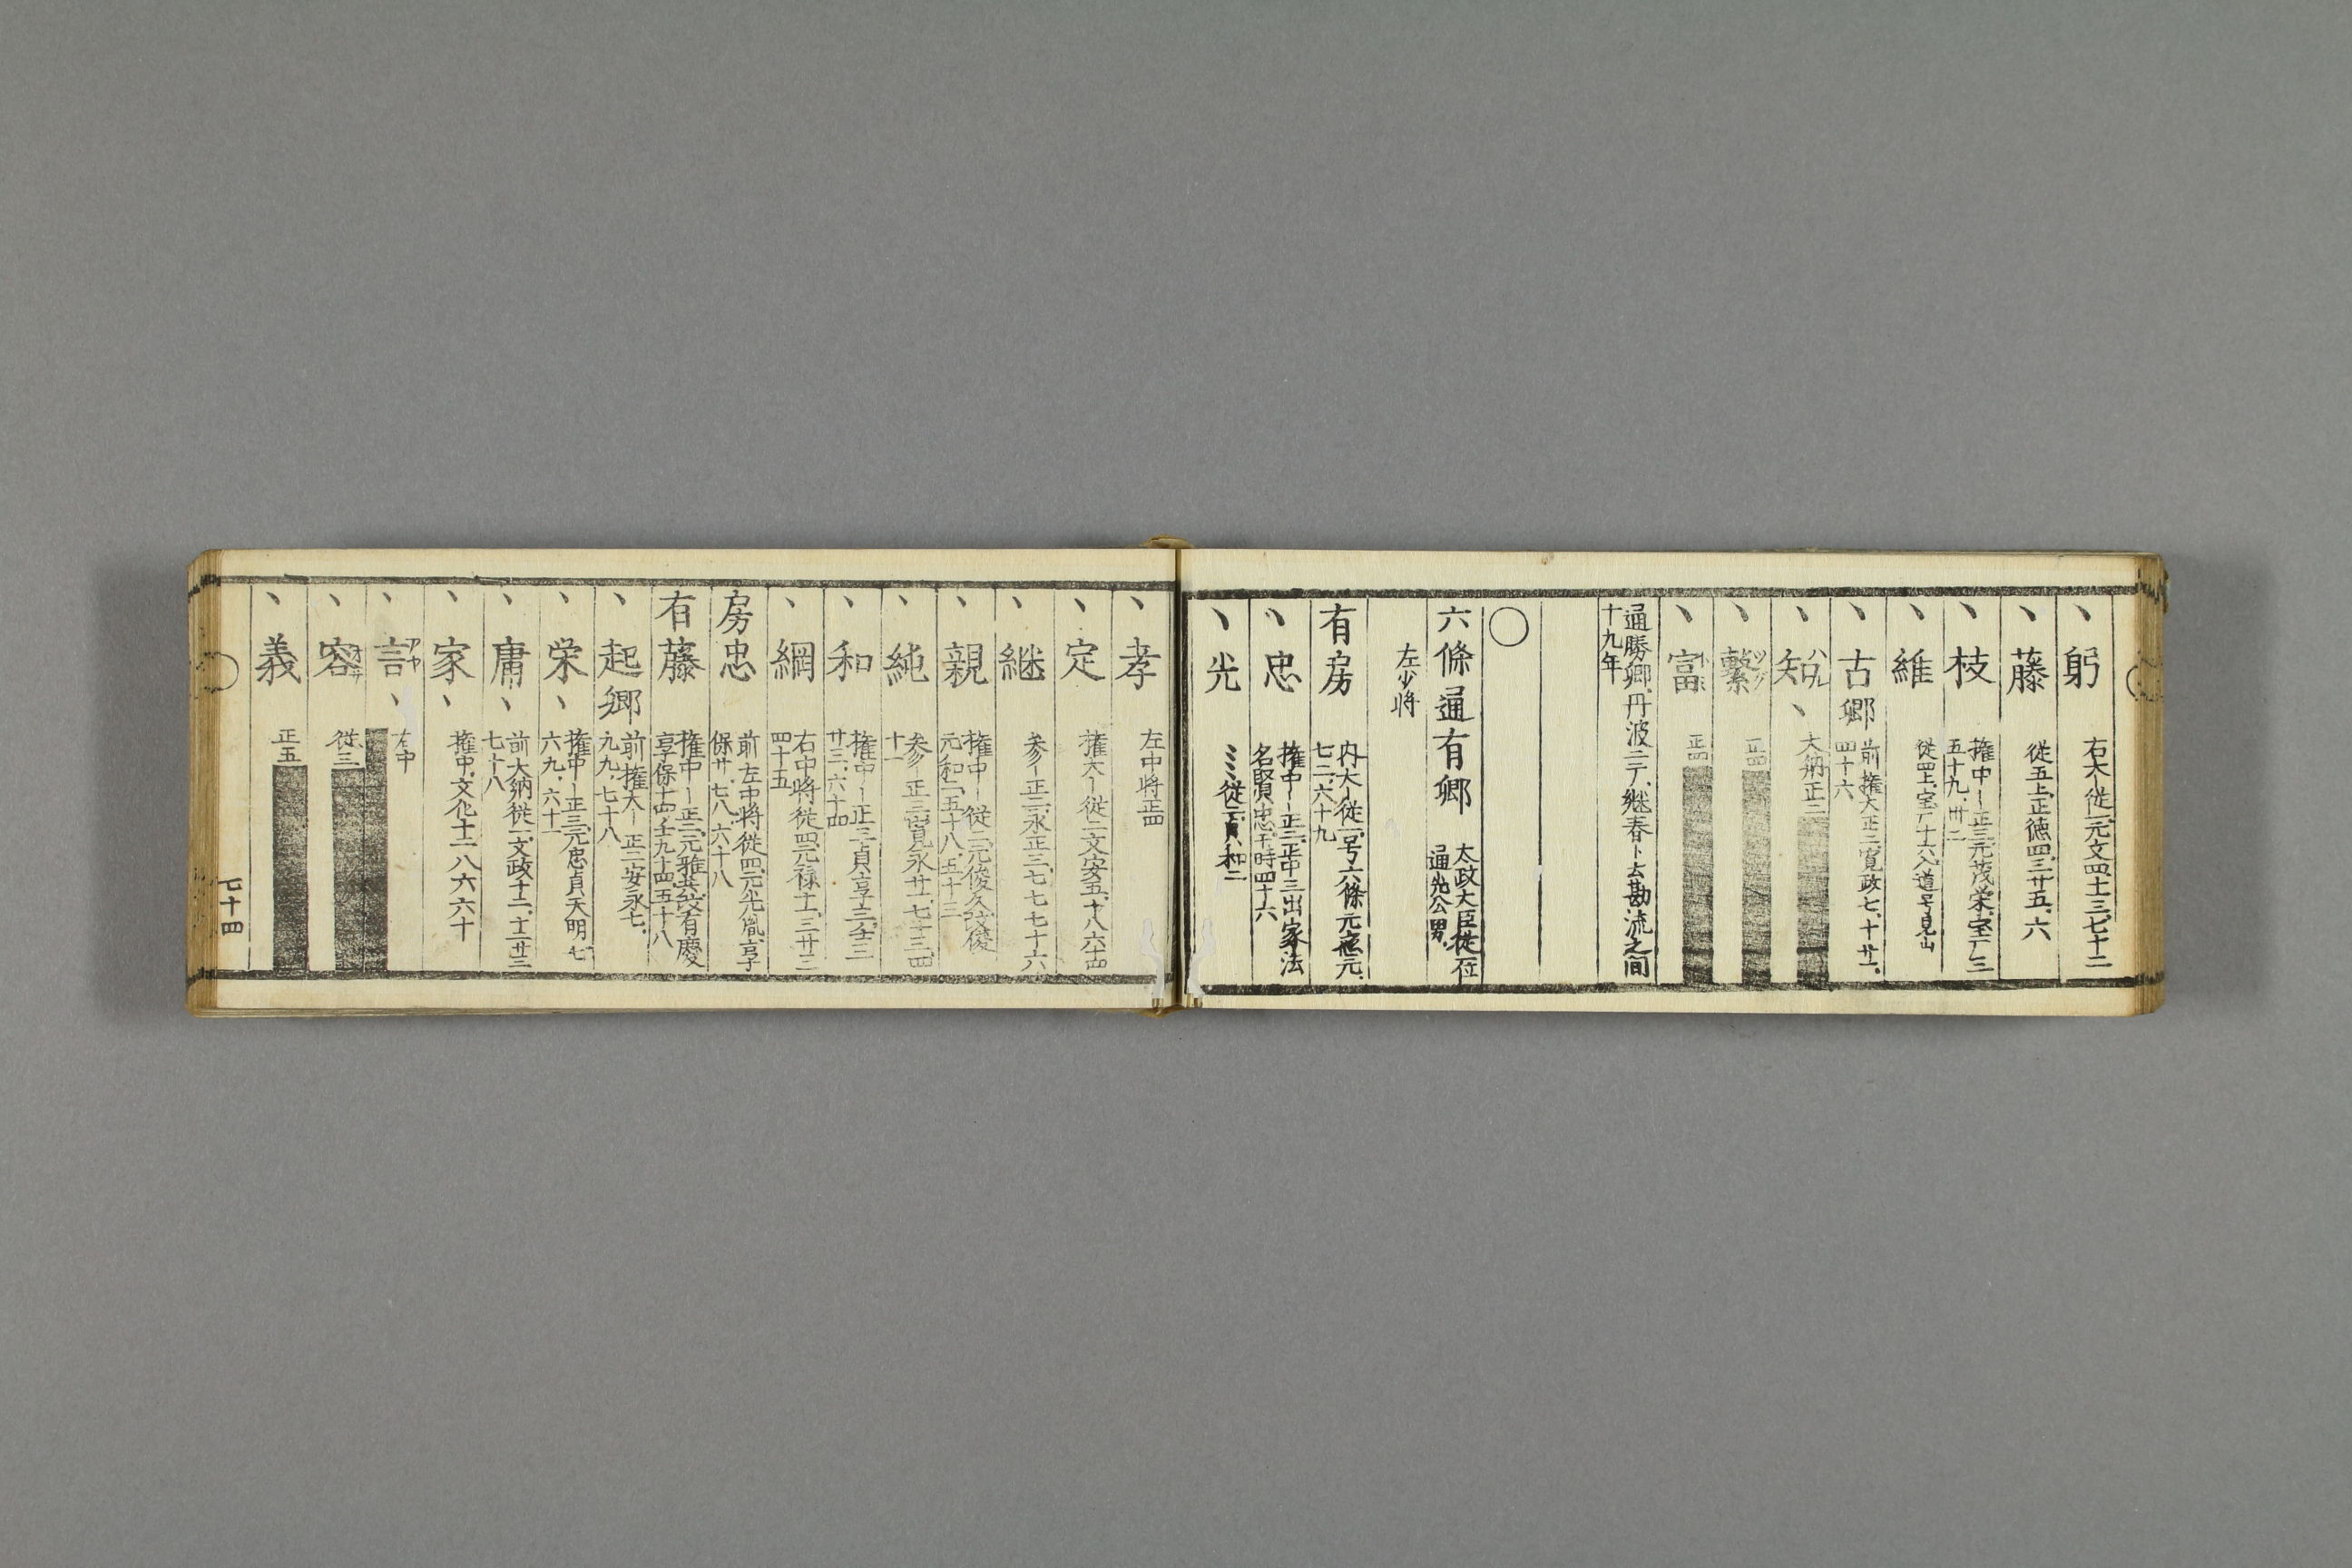 丶躬 右大丨従一元文四十三七十二
丶藤 従五上正徳四三廿五六
丶枝 権中丨正三元茂栄宝
五十九卅二
丶維 従四上宝 十六入道号見山
丶古卿 前権大正二寛政七十廿一
四十六
丶知ハル丶 大納正二
丶繫ツグ 正四
丶富トミ 正四
通勝卿丹波ニテ継春ト云勘流之間
十九年
〇
六條通有卿 太政大臣従一位
通光公男
左少将
有房 内大丨従一号六條元應元
七二六十九
丶忠 権中丨正三正中三出家法
名賢忠于時四十六
丶光 〻従二貞和二
丶孝 左中将正四
丶定 権大丨従二文安五十八六十四
丶継 参丨正三永正三七七七十六
丶親 権中丨従二元俊久改俊
元和二五十八五十三
丶純 参丨正三寛永廿一七十三四
十一
丶和 権中丨正三貞享三壬三
廿三六十四
丶綱 右中将従四元禄十一三廿二
四十五
房忠 前左中将従四元光胤享
保廿七八六十八
有藤 権中丨正二元雅共改有慶
享保十四壬九十四五十八
丶起卿 前権大丨正二安永七
九九七十八
丶栄丶 権中丨正三元忠貞天明七
六九六十一
丶庸丶 前大納従一文政十二十二廿三
七十八
丶家丶 権中文化十二八六六十
丶言アヤ丶 左中
丶容オサ 従三
丶義 正五
七十四